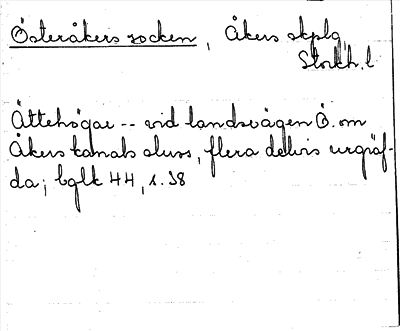 Österåkers socken, Åkers skplg,
Stockh. l
Ättehögar -- vid landsvägen Ö. om
Åkers kanals sluss, flera delvis urgräf-
da; bglk 44, s. 38